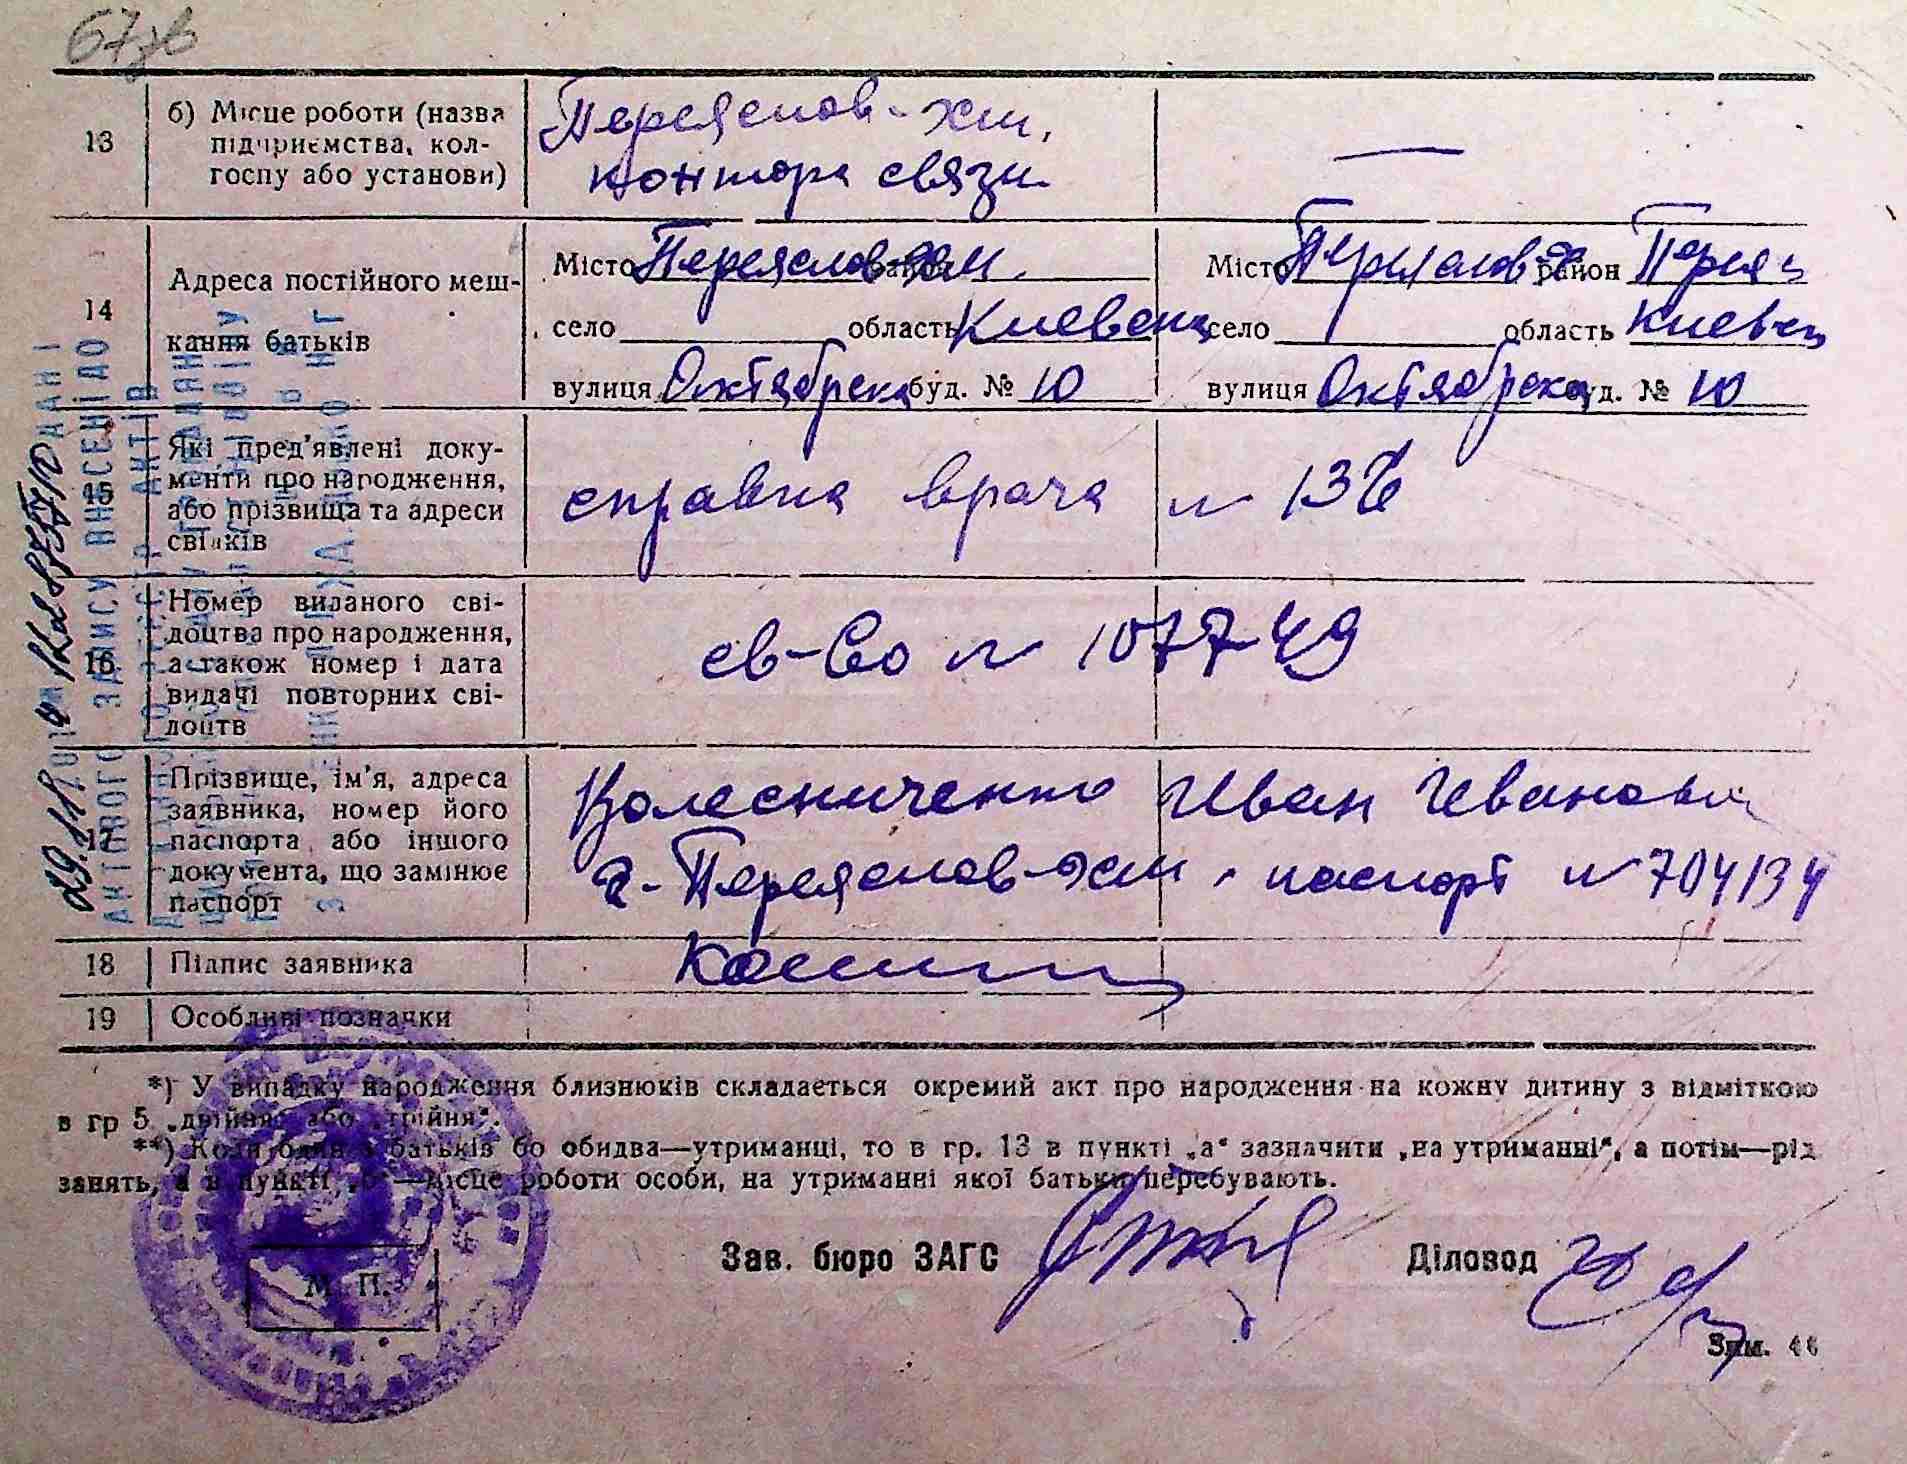 67зв
13
б) Місце роботи (назва
підприємства, кол-
госпу або установи)
Переяслов-хм,
контора связи
—
14
Адреса постійного меш-
кання батьків
Місто Переяслов-хм.
село область Киевск
вулиця Октябрска буд. № 10
Місто Переяслов-х район Переяс
село область Киевск
вулиця Октябрска буд. № 10
15
Які пред'явлені доку-
менти про народження,
або прізвища та адреси
свідків
справка врача № 136
16
Номер виданого сві-
доцтва про народження,
а також номер і дата
видачі повторних сві-
доцтв
св-во № 107749
17
Прізвище, ім'я, адреса
заявника, номер його
паспорта або іншого
документа, що замінює
паспорт
Колесниченко Иван Иванович
г. Переяслов-хм, паспорт № 704134
18
Підпис заявника
19
Особливі позначки
*) У випадку народження близнюків складається окремий акт про народження на кожну дитину з відміткою
в гр 5 „двійня“ або „трійня“.
**) Коли один з батьків бо обидва—утриманці, то в гр. 13 в пункті „а“ зазначити „на утриманні“, а потім—рід
занять, а в пункті „б“—місце роботи особи, на утриманні якої батьки перебувають.
Зав. бюро ЗАГС
Діловод
М. П.
Зам. 46
ДАНІ
АКТОВОГО ЗАПИСУ ВНЕСЕНІ ДО